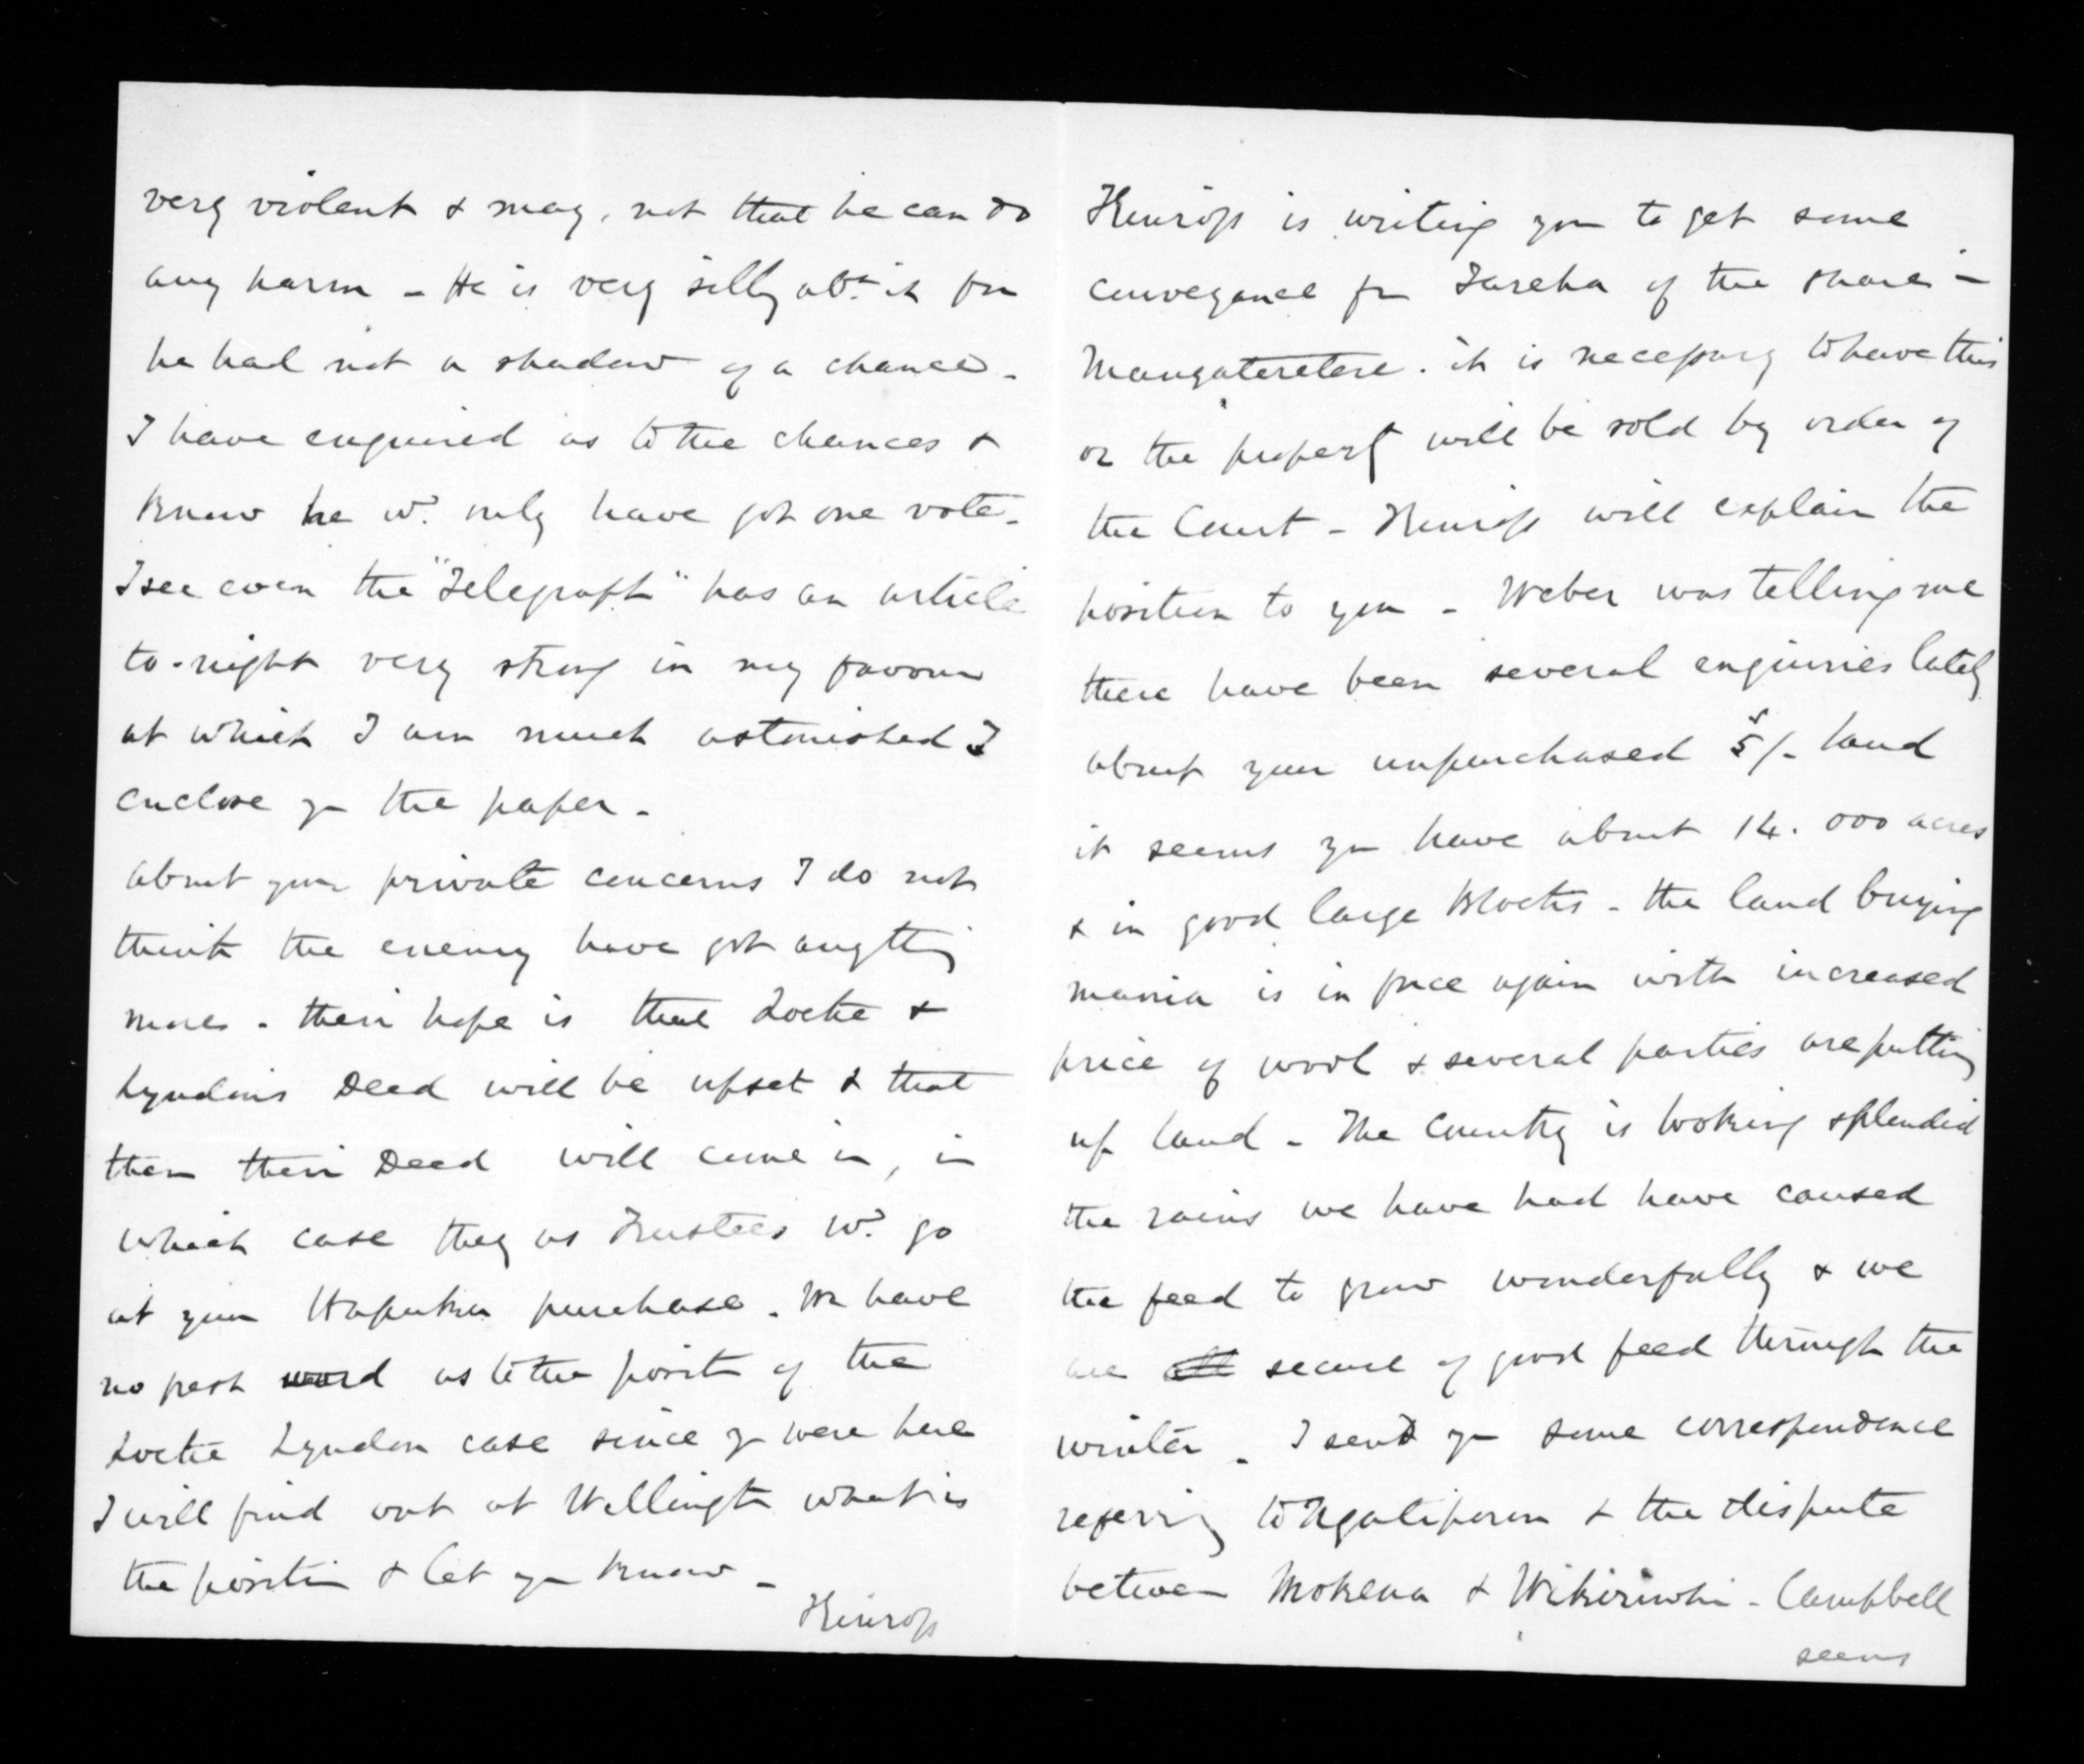 very violent & may, not that he can do
any harm - He is very silly abt. it for
he had not a shadow of a chance -
I have enquired as to the chances &
know he wd. only have got one vote -
I see even the "Telegraph" has an article
to-night very strong in my favour
at which I am much astonished I
enclose yu the paper -
about your private concerns I do not
think the enemy have got anything
more - their hope is that Locke &
Lyndon's Deed will be upset & that
then their Deed will come in, in
which case they as Trustees wd. go
at your Hapuku purchase. We have
no fresh word as to the position of the
Locke Lyndon case since yu were here
I will find out at Wellington what is
the position & let yu know -
Kinross
Kinross is writing you to get some
conveyance fm Tareha of the share in
Mangateretere. it is necessary to have this
or the property will be sold by order of
the Court - Kinross will explain the
position to you - Weber was telling me
there have been several enquiries lately
about your unpurchased 5/- land
it seems yu have about 14.000 acres
& in good large Blocks - the land buying
mania is in force again with increased
price of wool & several parties are putting
up land - The Country is looking splendid
the rains we have had have caused
the feed to grow wonderfully & we
are all secure of good feed through the
winter - I send yu some correspondence
referring to Ngatiporou & the dispute
between Mokena & Wikiriwhi - Campbell
seems